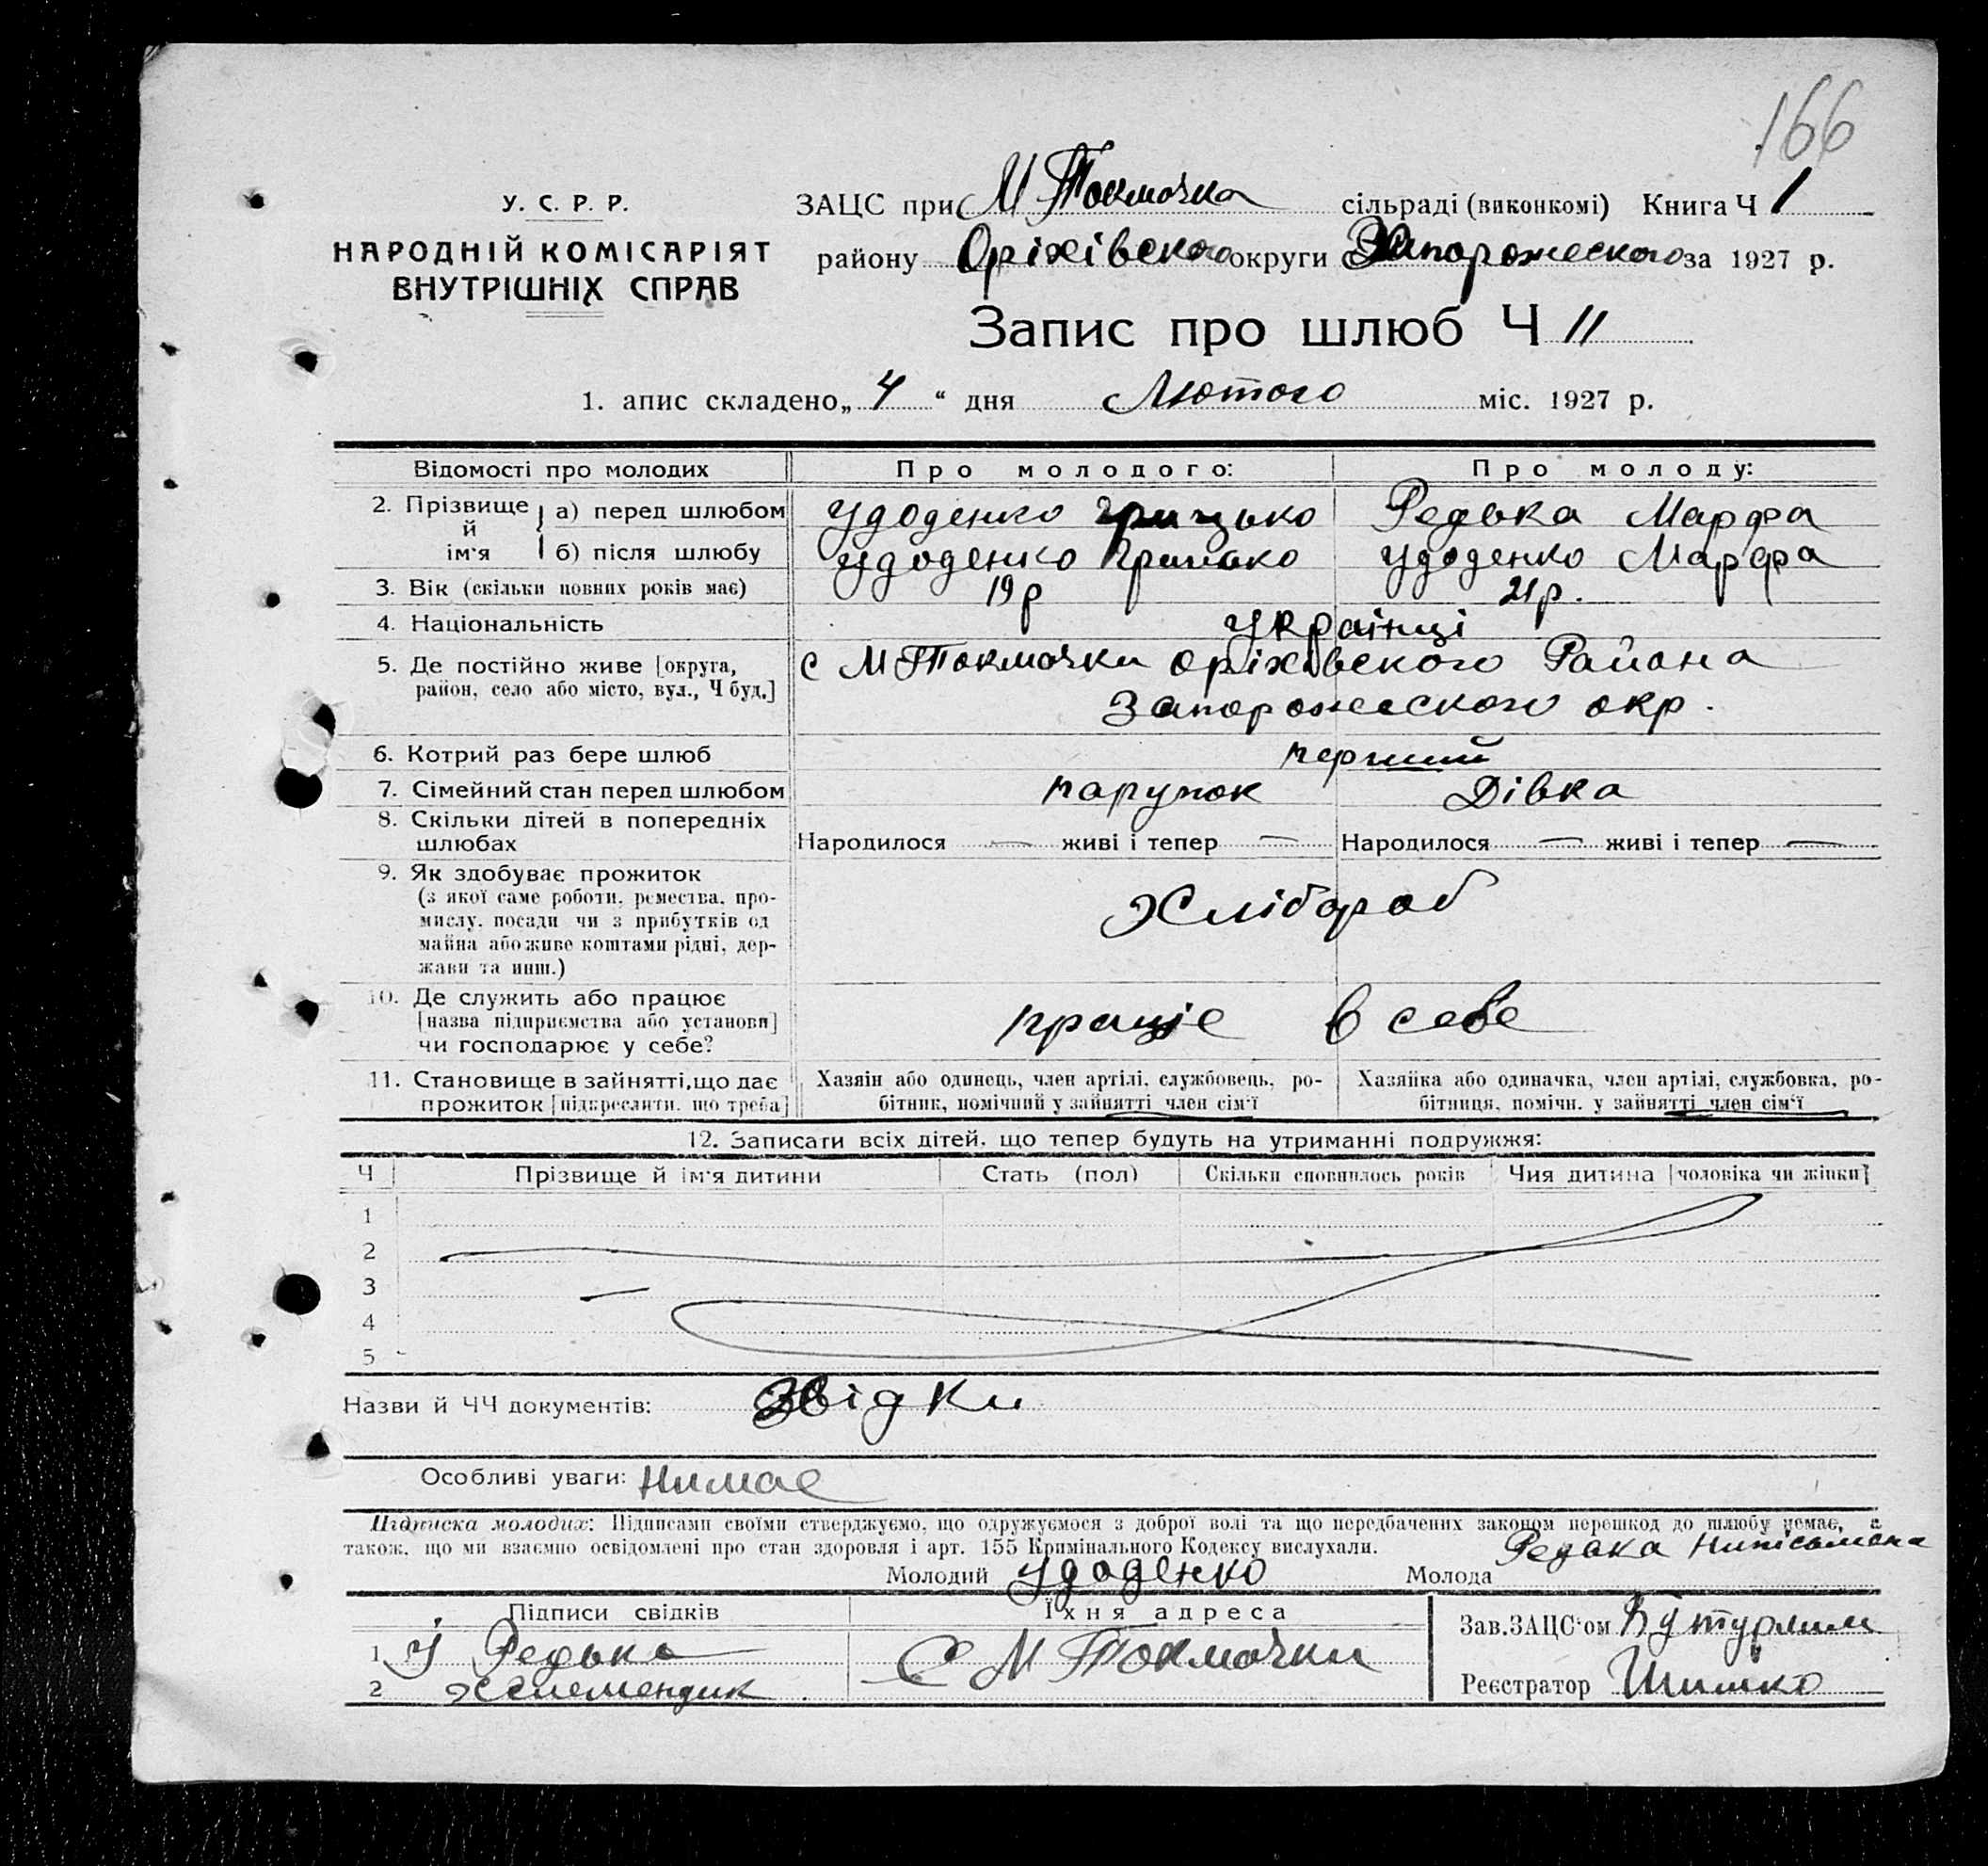 166
У. С. Р. Р.
НАРОДНІЙ КОМІСАРІЯТ
ВНУТРІШНІХ СПРАВ
ЗАЦС при М Токмачка сільраді (виконкомі) Книга Ч 1
району Оріхівского округи Запорожеского за 1927 р.
Запис про шлюб Ч 11
1. апис складено „ 4 “ дня Лютого міс. 1927 р.
Відомості про молодих Про молодого: Про молоду:
2. Прізвище й ім'я а) перед шлюбом Удоденко Грицько Редька Марфа
б) після шлюбу Удоденко Грицько Удоденко Марфа
3. Вік (скільки повних років має) 19 р 21 р.
4. Національність Українці
5. Де постійно живе [округа, с М Токмачки Оріхівского Района
район, село або місто, вул., Ч буд.] Запорожеского окр.
6. Котрий раз бере шлюб перший
7. Сімейний стан перед шлюбом парубок Дівка
8. Скільки дітей в попередніх
шлюбах Народилося — живі і тепер — Народилося — живі і тепер —
9. Як здобуває прожиток
(з якої саме роботи, ремества, про-
мислу, посади чи з прибутків од Хлібороб
майна або живе коштами рідні, дер-
жави та инш.)
10. Де служить або працює
[назва підприємства або установи] праціє в себе
чи господарює у себе?
11. Становище в зайнятті, що дає Хазяін або одинець, член артілі, службовець, ро- Хазяйка або одиначка, член артілі, службовка, ро-
прожиток [підкреслити, що треба] бітник, помічний у зайнятті член сім'ї бітниця, помічн. у зайнятті член сім'ї
12. Записати всіх дітей, що тепер будуть на утриманні подружжя:
Ч Прізвище й ім'я дитини Стать (пол) Скільки сповнилось років Чия дитина [чоловіка чи жінки]
1
2
3
4
5
Назви й ЧЧ документів: Звідки
Особливі уваги: Нимае
Підписка молодих: Підписами своїми стверджуємо, що одружуємося з доброї волі та що передбачених законом перешкод до шлюбу немає, а
також, що ми взаємно освідомлені про стан здоровля і арт. 155 Кримінального Кодексу вислухали.
Молодий Удоденко Молода Редька Нипісьмена
Підписи свідків Їхня адреса Зав. ЗАЦС'ом Бутурлим
1 У Редька С М Токмачки
2 Хелемендик Реєстратор Шишко